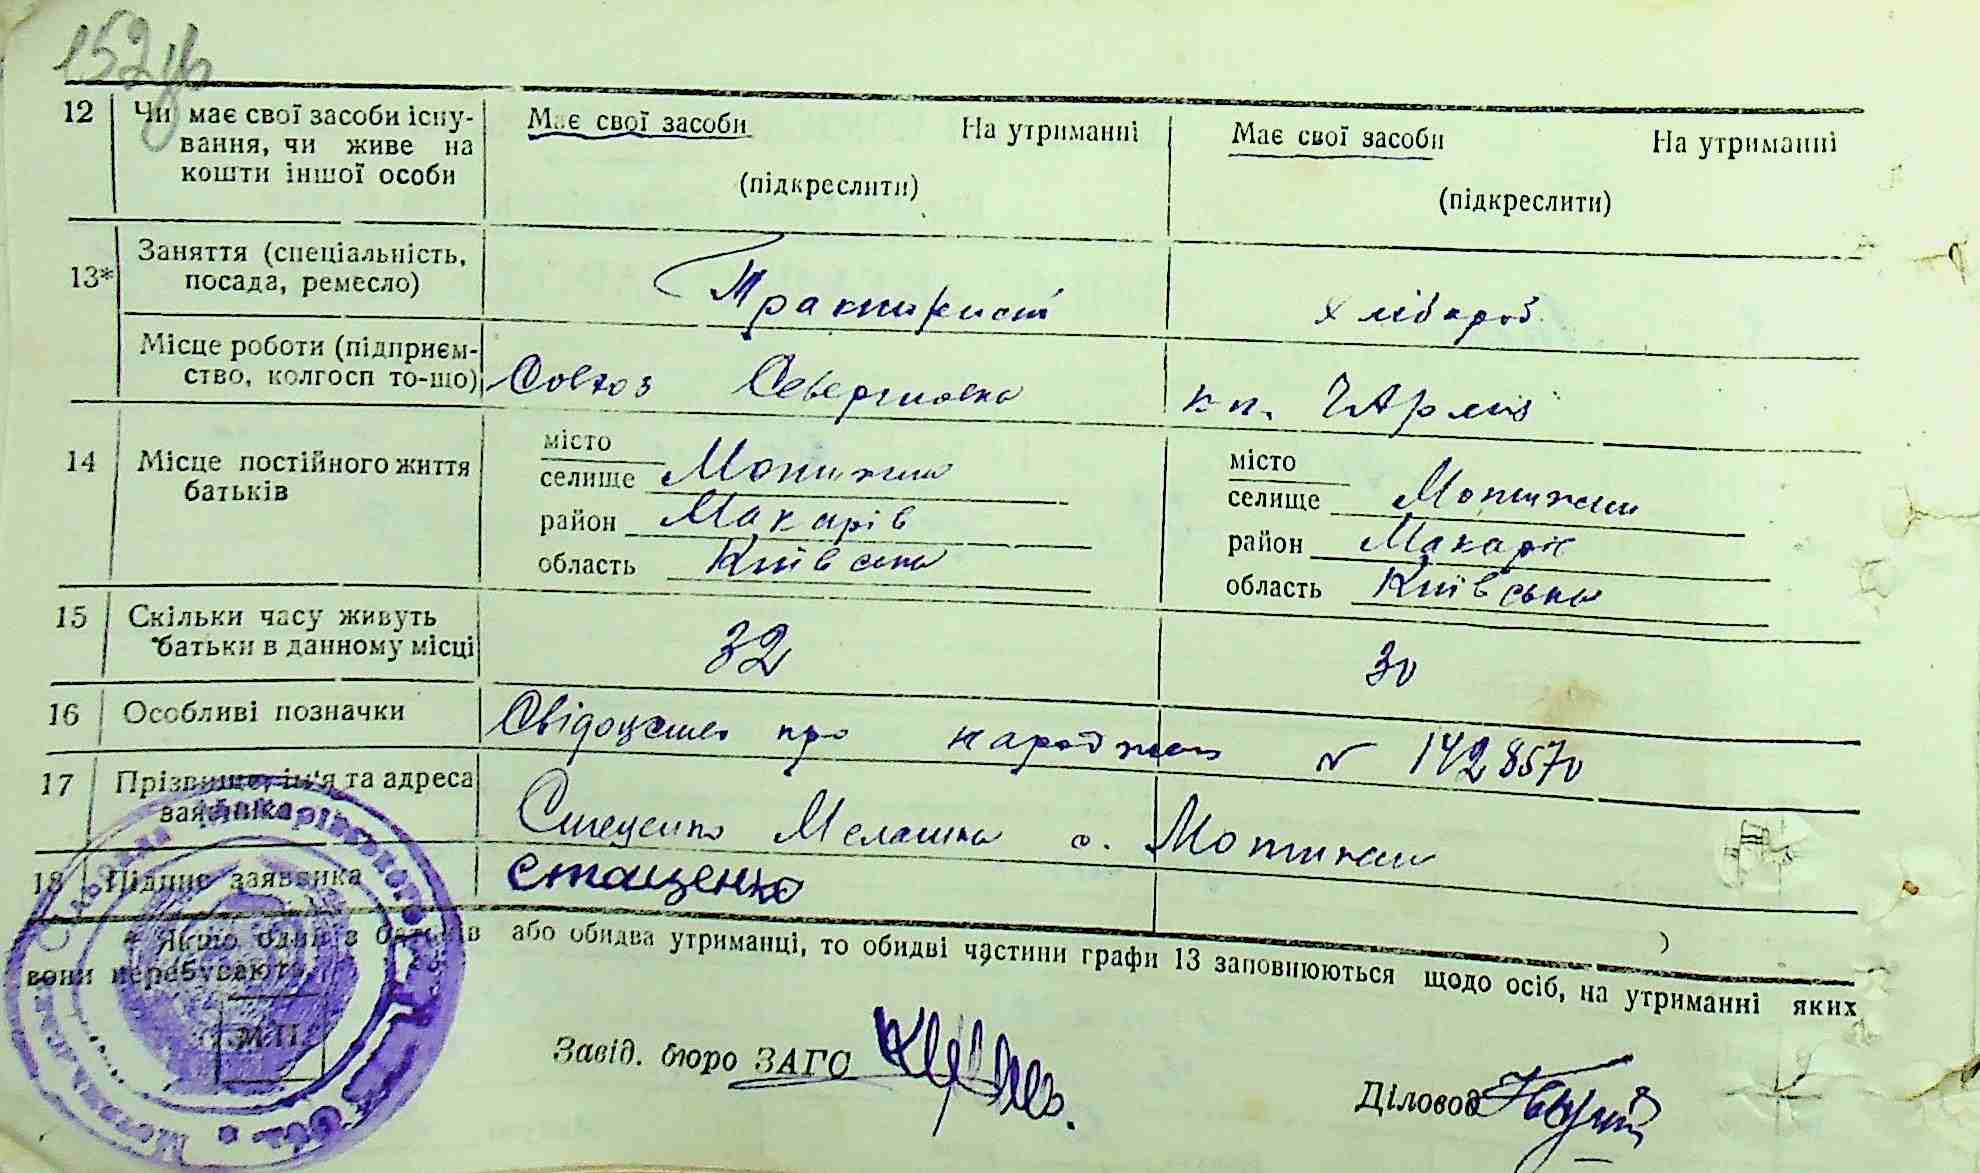 152
12 Чи має свої засоби існу-
вання, чи живе на
кошти іншої особи
Має свої засоби На утриманні
(підкреслити)
Має свої засоби На утриманні
(підкреслити)
13* Заняття (спеціальність,
посада, ремесло)
Тракторист
хлібороб
Місце роботи (підприєм-
ство, колгосп то-що)
Совхоз
кп. ЧАрмія
14 Місце постійного життя
батьків
місто
селище Мотижин
район Макарів
область Київська
місто
селище Мотижин
район Макарів
область Київська
15 Скільки часу живуть
батьки в данному місці
32
30
16 Особливі позначки
Свідоцтво про народження № 1428570
17 Прізвище, ім'я та адреса
заявника
Стаценко Мелашка с. Мотижин
18 Підпис заявника
стаценко
* Якщо один з батьків або обидва утриманці, то обидві частини графи 13 заповнюються щодо осіб, на утриманні яких
вони перебувають.
М.П.
Завід. бюро ЗАГС
Діловод
Макарівського